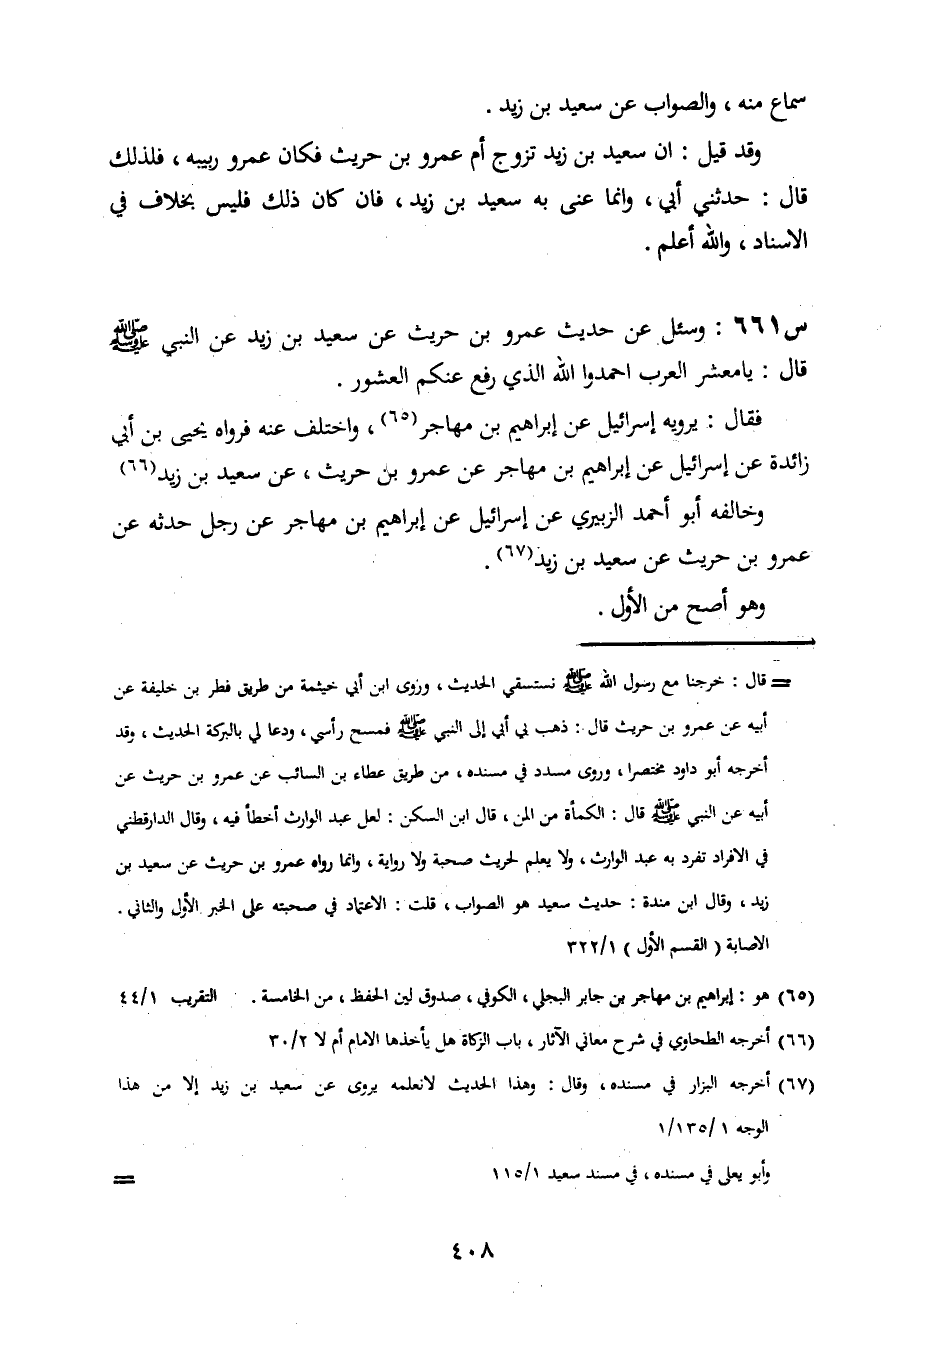 سماع منه ، والصواب عن سعيد بن زيد .
وقد قيل : ان سعيد بن زيد تزوج أم عمرو بن حريث فكان عمرو ربيبه ، فلذلك
قال : حدثني أبي ، وانما عنى به سعيد بن زيد ، فان كان ذلك فليس بخلاف في
الاسناد ، والله أعلم .
س٦٦١ : وسئل عن حديث عمرو بن حريث عن سعيد بن زيد عن النبي ﷺ
قال : يامعشر العرب احمدوا الله الذي رفع عنكم العشور .
فقال : يرويه إسرائيل عن إبراهيم بن مهاجر(٦٥) ، واختلف عنه فرواه يحيى بن أبي
زائدة عن إسرائيل عن إبراهيم بن مهاجر عن عمرو بن حريث ، عن سعيد بن زيد(٦٦)
وخالفه أبو أحمد الزبيري عن إسرائيل عن إبراهيم بن مهاجر عن رجل حدثه عن
عمرو بن حريث عن سعيد بن زيد(٦٧) .
وهو أصح من الأول .
= قال : خرجنا مع رسول الله ﷺ نستسقي الحديث ، وروى ابن أبي خيثمة من طريق فطر بن خليفة عن
أبيه عن عمرو بن حريث قال : ذهب بي أبي إلى النبي ﷺ فمسح رأسي ، ودعا لي بالبركة الحديث ، وقد
أخرجه أبو داود مختصرا ، وروى مسدد في مسنده ، من طريق عطاء بن السائب عن عمرو بن حريث عن
أبيه عن النبي ﷺ قال : الكمأة من المن ، قال ابن السكن : لعل عبد الوارث أخطأ فيه ، وقال الدارقطني
في الافراد تفرد به عبد الوارث ، ولا يعلم لحريث صحبة ولا رواية ، وانما رواه عمرو بن حريث عن سعيد بن
زيد ، وقال ابن مندة : حديث سعيد هو الصواب ، قلت : الاعتماد في صحبته على الخبر الأول والثاني .
الاصابة ( القسم الأول ) ٣٢٢/١
(٦٥) هو : إبراهيم بن مهاجر بن جابر البجلي ، الكوفي ، صدوق لين الحفظ ، من الخامسة . التقريب ٤٤/١
(٦٦) أخرجه الطحاوي في شرح معاني الآثار ، باب الزكاة هل يأخذها الامام أم لا ٣٠/٢
(٦٧) أخرجه البزار في مسنده ، وقال : وهذا الحديث لانعلمه يروى عن سعيد بن زيد إلا من هذا
الوجه ١/١٣٥/١
وأبو يعلى في مسنده ، في مسند سعيد ١١٥/١ =
٤٠٨